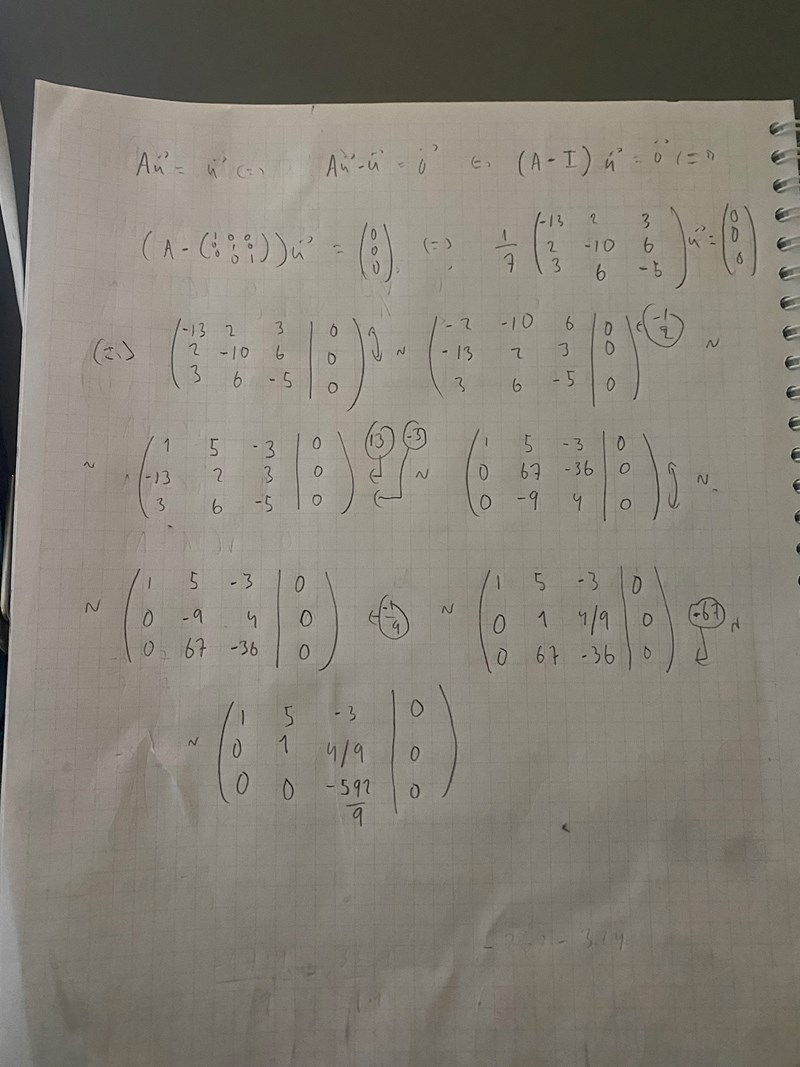 Au⃗ = u⃗ (=) Au⃗ - u⃗ = 0⃗ (=) (A - I) u⃗ = 0⃗ (=)
(A - (1 0 0; 0 1 0; 0 0 1)) u⃗ = (0; 0; 0) (=) 1/7 (-13 2 3; 2 -10 6; 3 6 -5) u⃗ = (0; 0; 0)
(=) (-13 2 3 | 0; 2 -10 6 | 0; 3 6 -5 | 0) ~ (-2 -10 6 | 0; -13 2 3 | 0; 3 6 -5 | 0) -1/2 ~
~ (1 5 -3 | 0; -13 2 3 | 0; 3 6 -5 | 0) 13 -3 ~ (1 5 -3 | 0; 0 67 -36 | 0; 0 -9 4 | 0) ~
~ (1 5 -3 | 0; 0 -9 4 | 0; 0 67 -36 | 0) -1/9 ~ (1 5 -3 | 0; 0 1 4/9 | 0; 0 67 -36 | 0) -67 ~
~ (1 5 -3 | 0; 0 1 4/9 | 0; 0 0 -592/9 | 0)